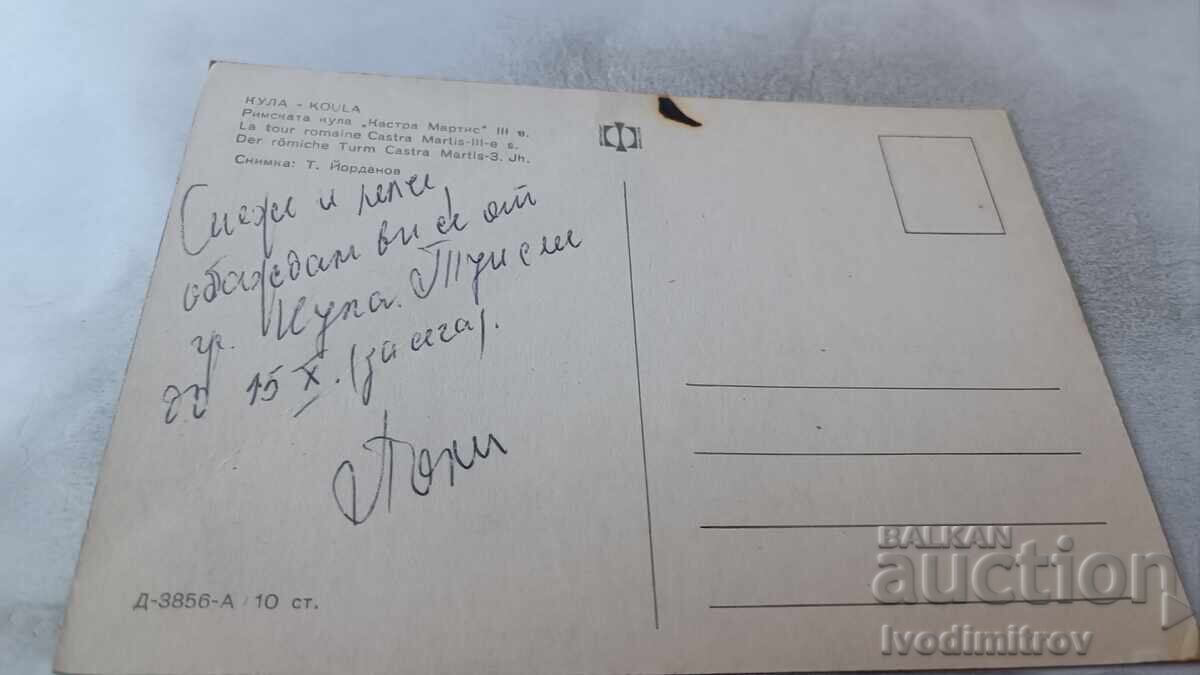 КУЛА - KOULA
Римската кула „Кастра Мартис" III в.
La tour romaine Castra Martis-III-e s.
Der römiche Turm Castra Martis-3. Jh.
Снимка: Т. Йорданов
и
обаждам ви се от
гр. Кула. Тук съм
до 15 X. (засега).
Д-3856-А / 10 ст.
BALKAN
auction
Ivodimitrov